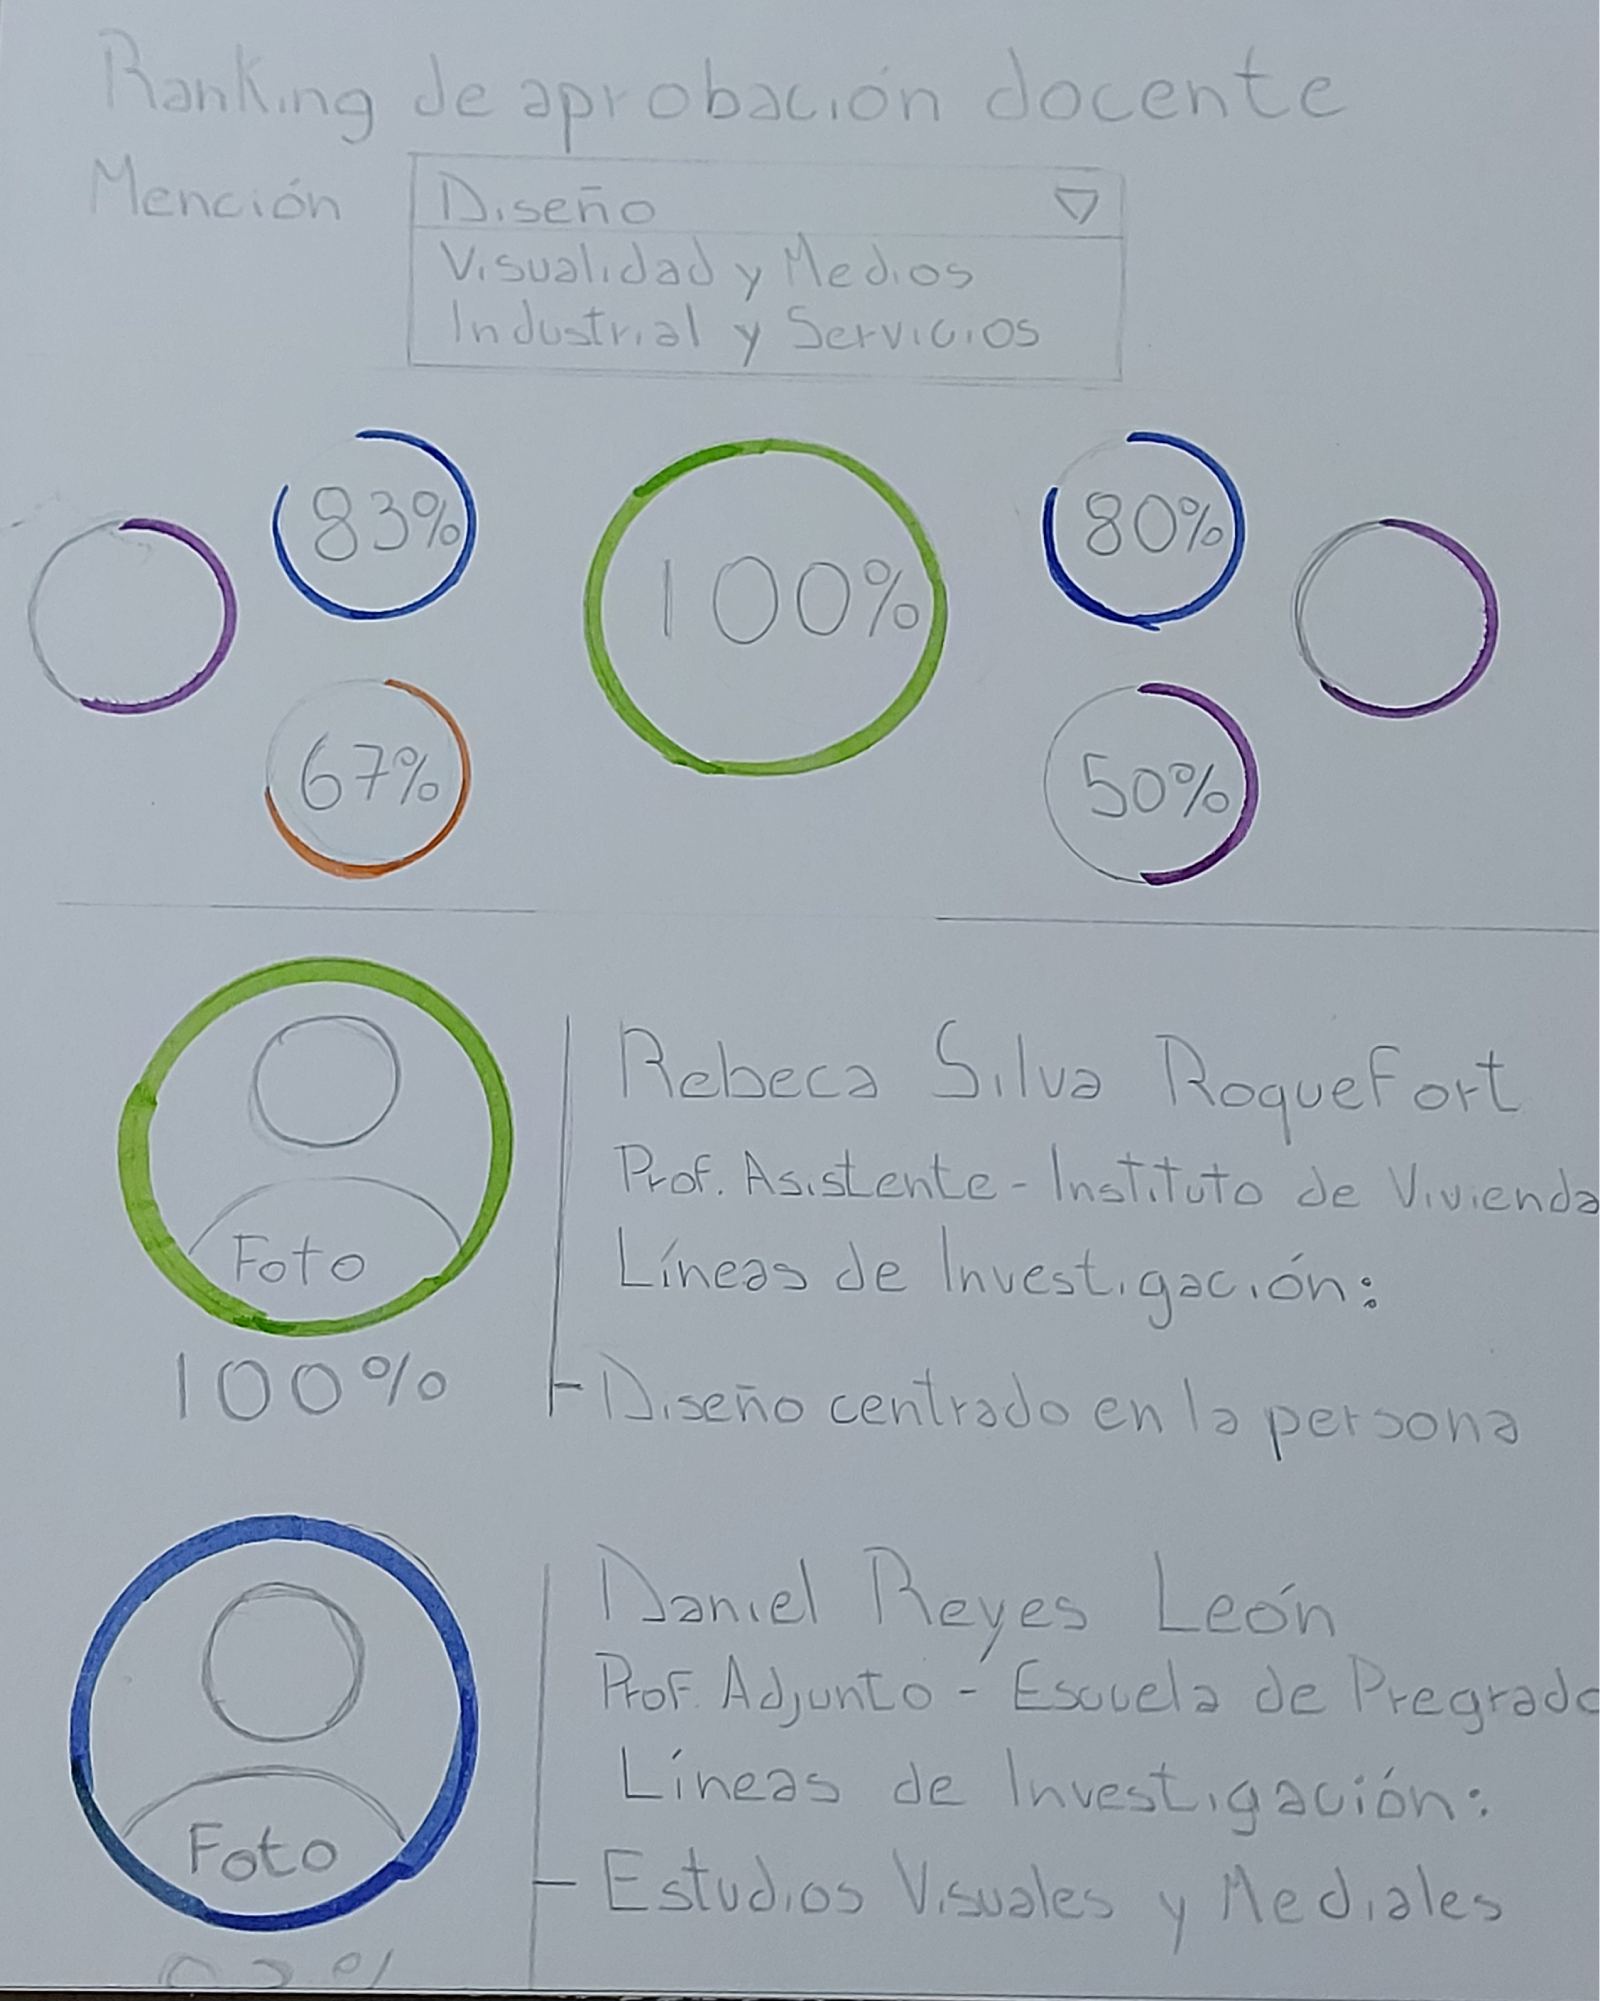 Ranking de aprobación docente
Mención
Diseño
Visualidad y Medios
Industrial y Servicios
83%
100%
80%
67%
50%
Rebeca Silva Roquefort
Prof. Asistente - Instituto de Vivienda
Líneas de Investigación:
- Diseño centrado en la persona
Foto
100%
Daniel Reyes León
Prof. Adjunto - Escuela de Pregrado
Líneas de Investigación:
- Estudios Visuales y Mediales
Foto